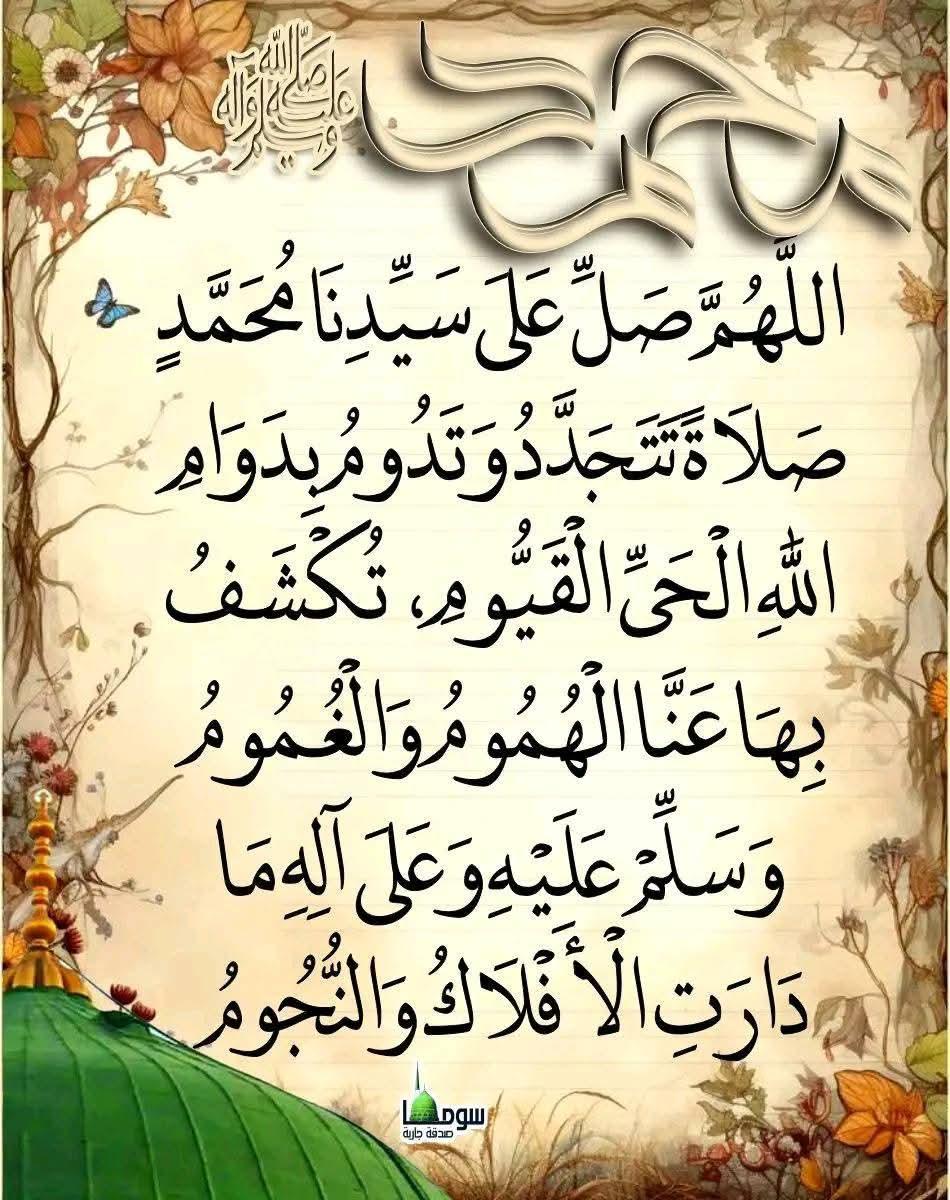 محمد
صلى الله عليه وآله وسلم
اللَّهُمَّ صَلِّ عَلَى سَيِّدِنَا مُحَمَّدٍ
صَلَاةً تَتَجَدَّدُ وَتَدُومُ بِدَوَامِ
اللهِ الْحَيِّ الْقَيُّومِ، تُكْشَفُ
بِهَا عَنَّا الْهُمُومُ وَالْغُمُومُ
وَسَلِّمْ عَلَيْهِ وَعَلَى آلِهِ مَا
دَارَتِ الْأَفْلَاكُ وَالنُّجُومُ
سوما
صدقة جارية